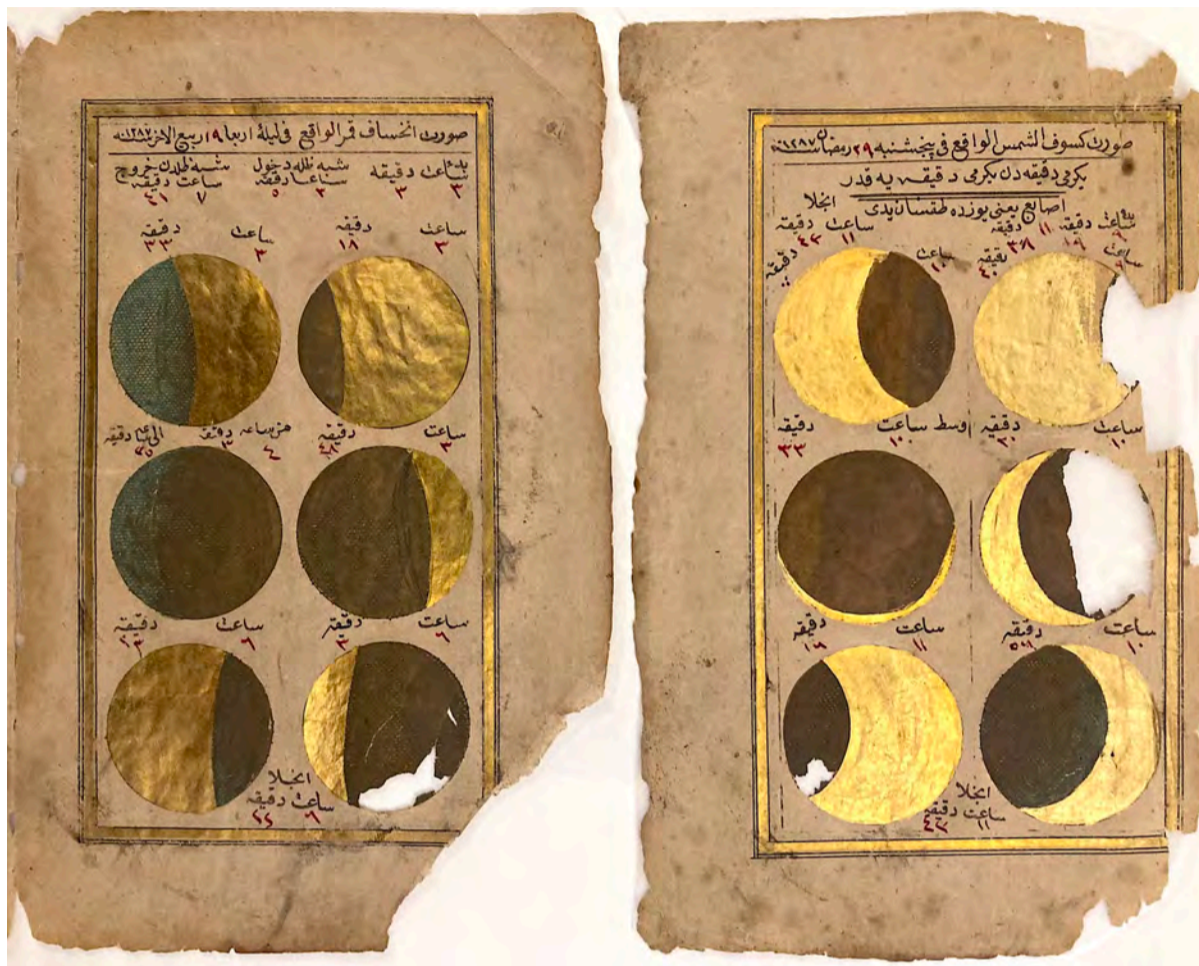 صورت كسوف الشمس الواقع فى پنجشنبه ٢٩ رمضان سنه ١٢٨٧
يكرمى دقيقه دن يكرمى دقيقه يه قدر
اصابع يعنى يوزده طقسان يدى
ساعت دقيقه
انجلا
ساعت دقيقه
١١ ٤٢
ساعت
٩
دقيقه
٤٠
ساعت
١٠
دقيقه
ساعت
١٠
دقيقه
٢٠
وسط ساعت
١٠
دقيقه
٣٣
ساعت
١٠
دقيقه
ساعت
١١
دقيقه
١٦
انجلا
ساعت دقيقه
١١ ٤٢
صورت انخساف قمر الواقع فى ليلهٔ اربعا ١٩ ربيع الاخر سنه ١٢٨٧
بدء
ساعت دقيقه
٣ ٣
شبه ظله دخول
ساعت دقيقه
٣ ٥
شبه ظلدن خروج
ساعت دقيقه
٧ ٤١
ساعت
٣
دقيقه
١٨
ساعت
٣
دقيقه
٣٣
ساعت
٣
دقيقه
٤٨
من ساعه
٤
دقيقه
٣
الى ساعه
دقيقه
ساعت
٦
دقيقه
ساعت
٦
دقيقه
انجلا
ساعت دقيقه
٦